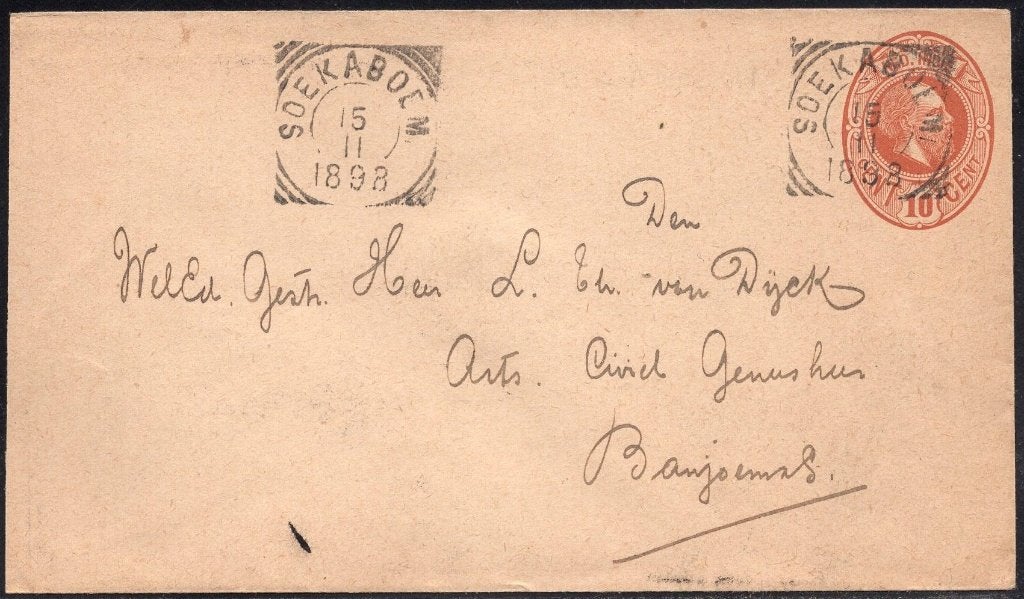 SOEKABOEM
15
11
1898
SOEKABOEMI
15
11
1898
NED. INDIE
10 CENT
Den
WelEd. Gestr. Heer L. Th. van Dijck
Arts. Civiel Geneesheer
Banjoemas.